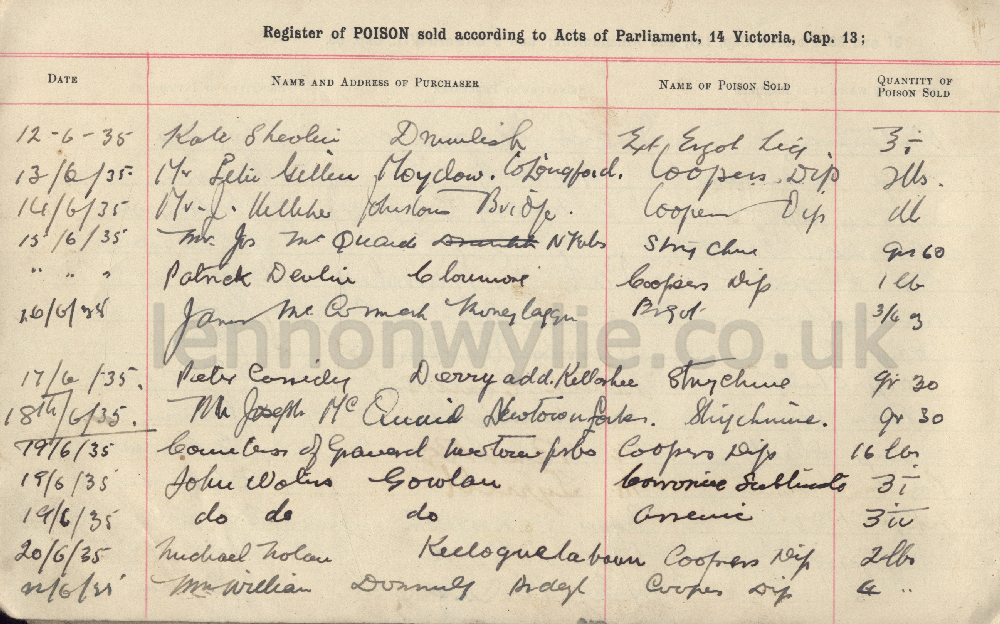 Register of POISON sold according to Acts of Parliament, 14 Victoria, Cap. 13;
DATE NAME AND ADDRESS OF PURCHASER NAME OF POISON SOLD QUANTITY OF POISON SOLD
12-6-35 Kate Drumlish Ext Ergot Liq
13/6/35 Mr Peter Gillen Moydow. Co Longford. Coopers Dip 2lbs.
14/6/35 Mr. J. Kelliher Johnstons Bridge. Coopers Dip
15/6/35 Mr. Jos McQuaid N Forbes Strychnine grs 60
" " " Patrick Devlin Coopers Dip 1 lb
James McCormack Ergot
17/6/35. Peter Cassidy Derryadd. Killashee Strychnine gr 30
18th/6/35. Mr Joseph McQuaid Newtownforbes. Strychnine. gr 30
19/6/35 Countess of Granard Newtownforbes Coopers Dip 16 lbs
19/6/35 John Gowlan Corrosive Sublimate
19/6/35 do do do Arsenic
20/6/35 Michael Nolan Coopers Dip 2lbs
William Ardagh Coopers Dip 4 "
lennonwylie.co.uk